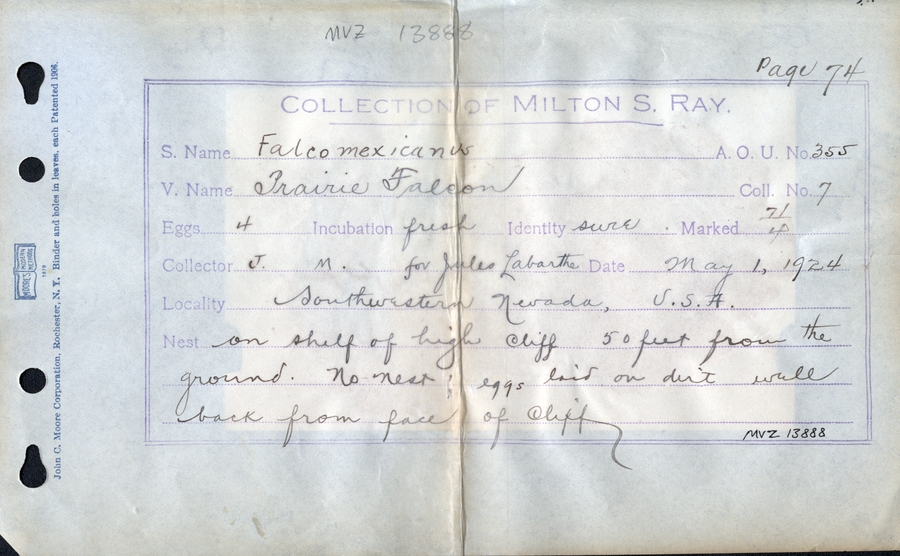 MVZ 13888
Page 74
COLLECTION OF MILTON S. RAY.
S. Name Falco mexicanus A. O. U. No. 355
V. Name Prairie Falcon Coll. No. 7
Eggs 4 Incubation fresh Identity sure Marked 71/4
Collector J. M. for Jules Labarthe Date May 1, 1924
Locality Southwestern Nevada, U.S.A.
Nest on shelf of high cliff 50 feet from the
ground. No nest; eggs laid on dirt well
back from face of cliff
MVZ 13888
John C. Moore Corporation, Rochester, N. Y. Binder and holes in leaves, each Patented 1906.
MOORE'S MODERN METHODS